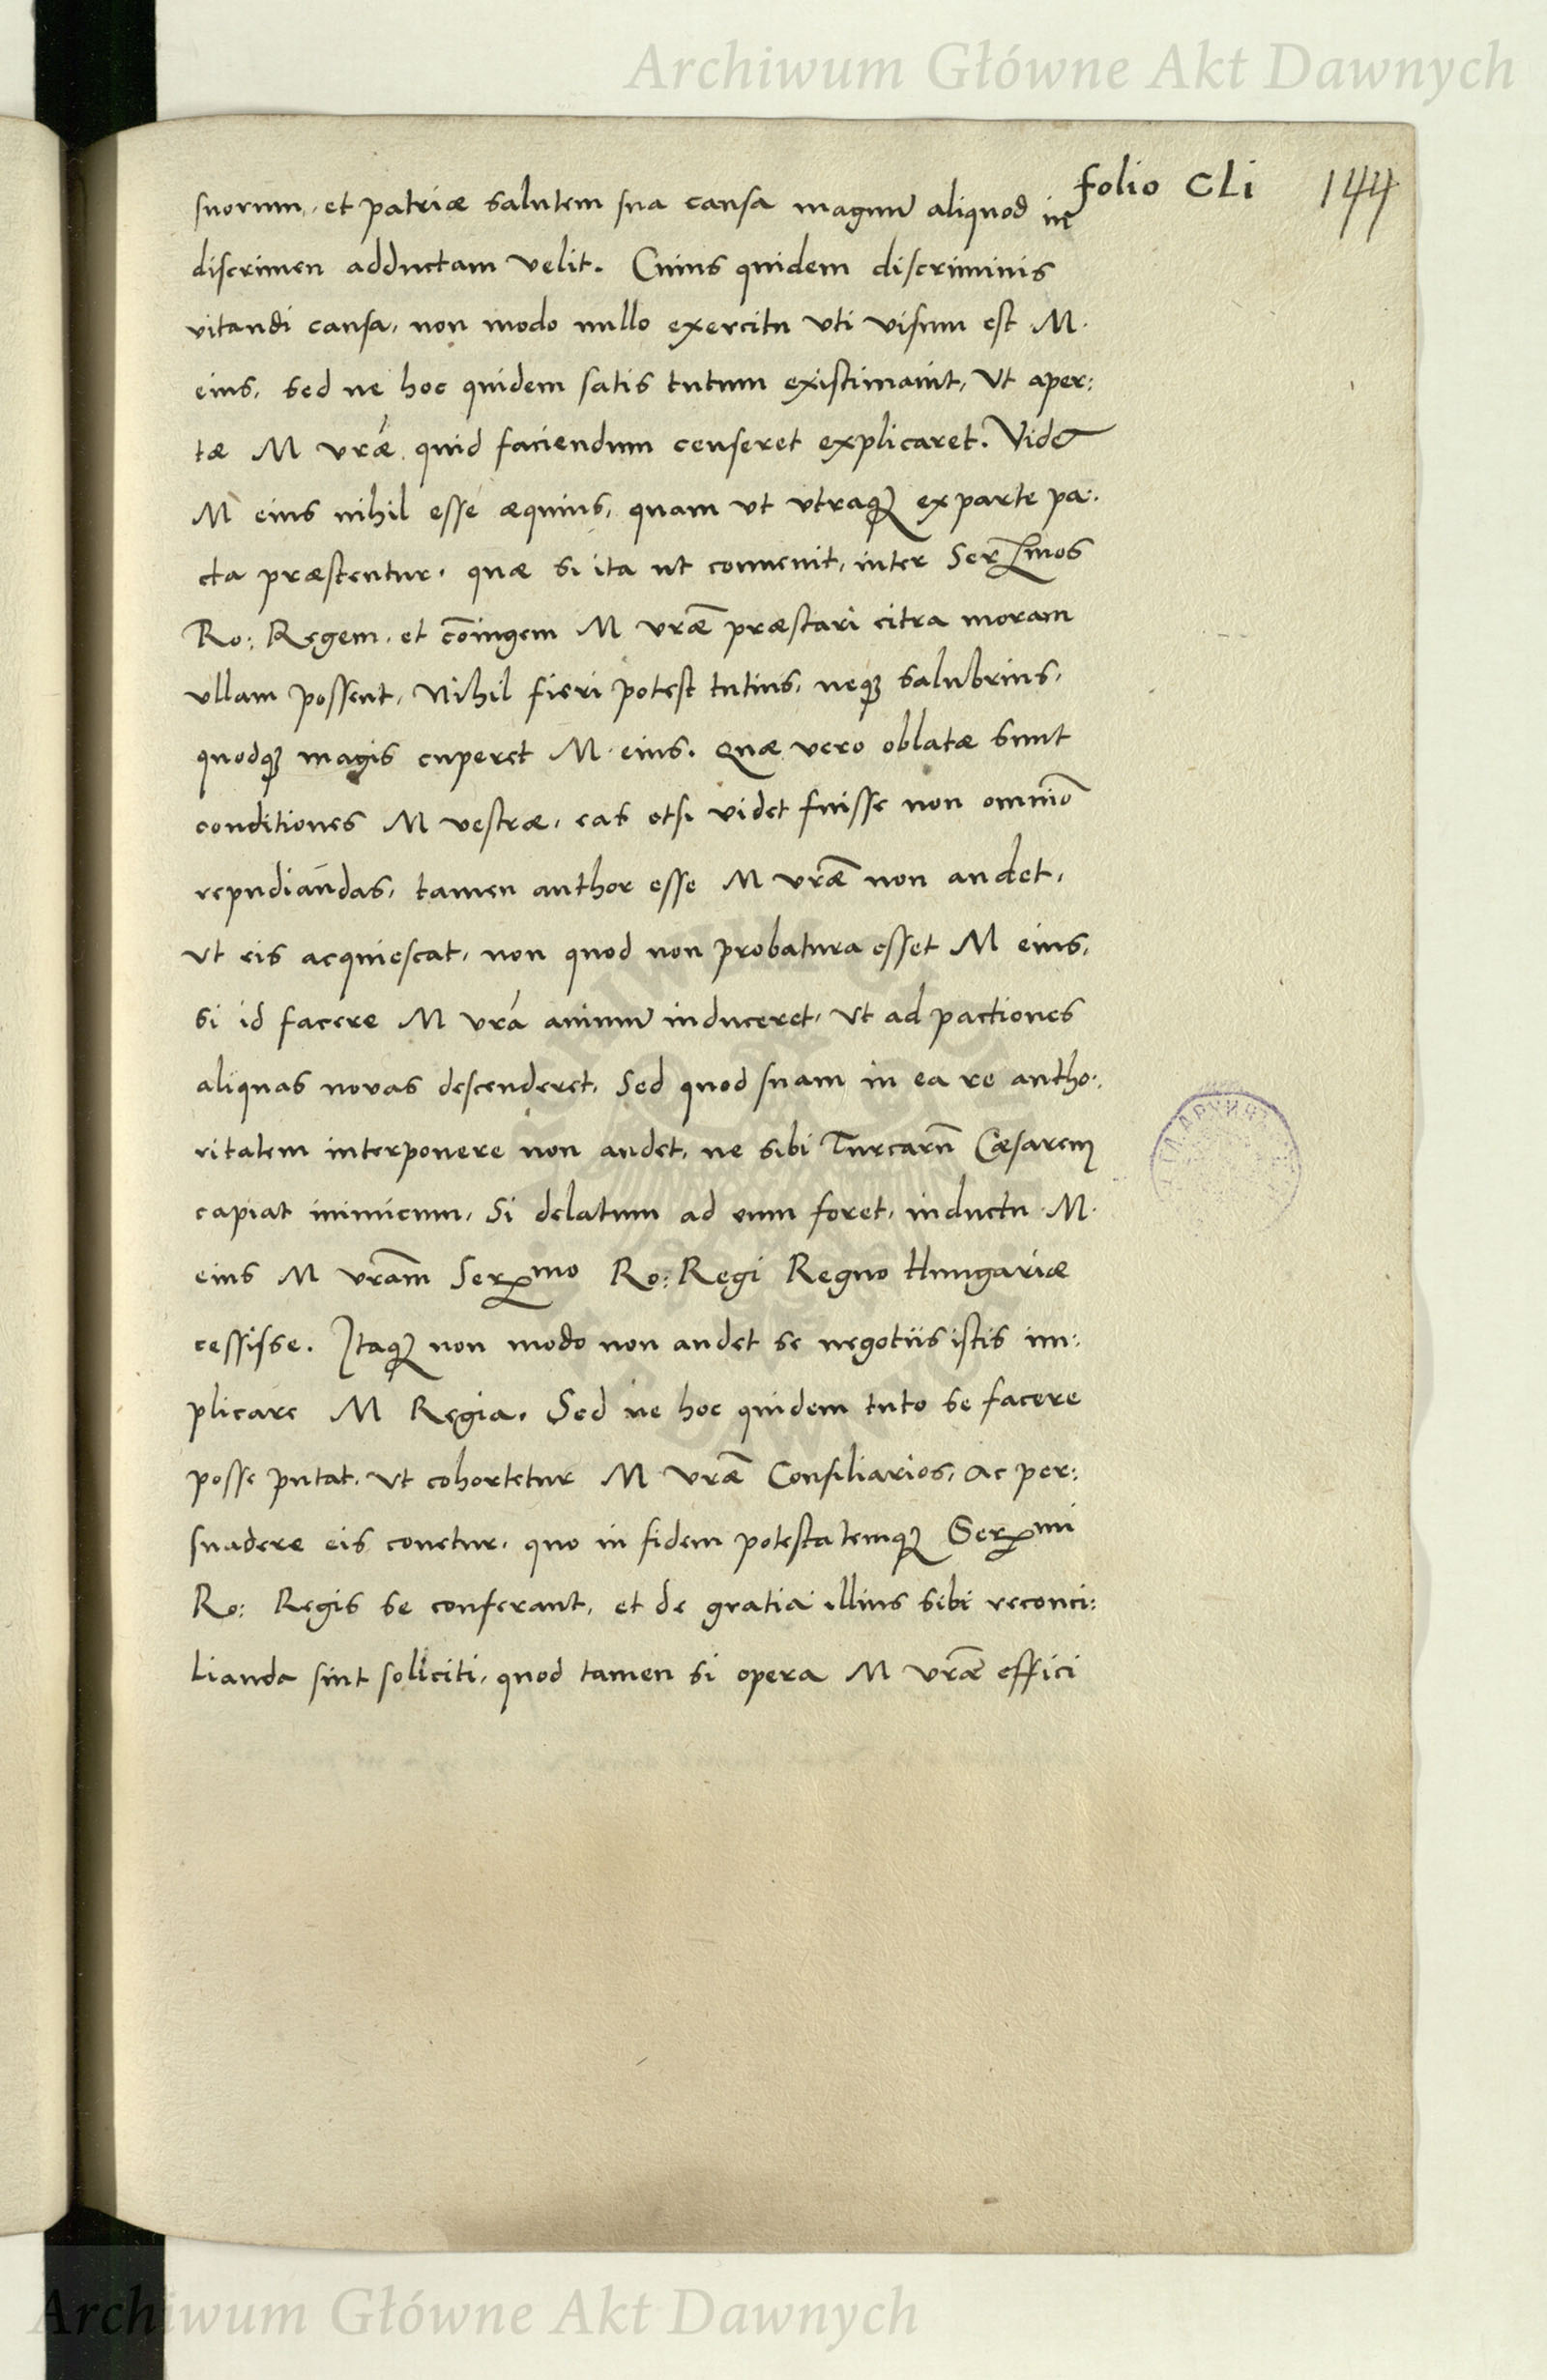 Archiwum Główne Akt Dawnych
folio CLi 144
suorum, et patriæ salutem sua causa magnū aliquod in
discrimen adductam velit. Cuius quidem discriminis
vitandi causa, non modo nullo exercitu vti visum est M.
eius, sed ne hoc quidem satis tutum existimauit, Vt aper:
tæ M vræ quid faciendum censeret explicaret. Videt
M eius nihil esse æquius, quam vt vtraqȝ ex parte pa:
cta præstentur, quæ si ita ut conuenit, inter Serᵐᵒˢ
Ro: Regem, et cōiugem M vræ præstari citra moram
vllam possent, Nihil fieri potest tutius, neqȝ salubrius,
quodqȝ magis cuperet M. eius. Quæ vero oblatæ sunt
conditiones M vestræ, eas etsi videt fuisse non omnīo
repudiandas, tamen author esse M vræ non audet,
Vt eis acquiescat, non quod non probatura esset M eius,
si id facere M vrā animū induceret, Vt ad pactiones
aliquas novas descenderet, Sed quod suam in ea re autho:
ritatem interponere non audet, ne sibi Turcarū Cæsarem
capiat inimicum, Si delatum ad eum foret, inductu M.
eius M vram Serᵐᵒ Ro: Regi Regno Hungariæ
cessisse. Itaqȝ non modo non audet se negotiis istis im:
plicare M Regia. Sed ne hoc quidem tuto se facere
posse putat, Vt cohortetur M vræ Consiliarios, ac per:
suadere eis conetur, quo in fidem potestatemqȝ Serᵐⁱ
Ro: Regis se conferant, et de gratia illius sibi reconci:
lianda sint solliciti, quod tamen si opera M vræ effici
Archiwum Główne Akt Dawnych